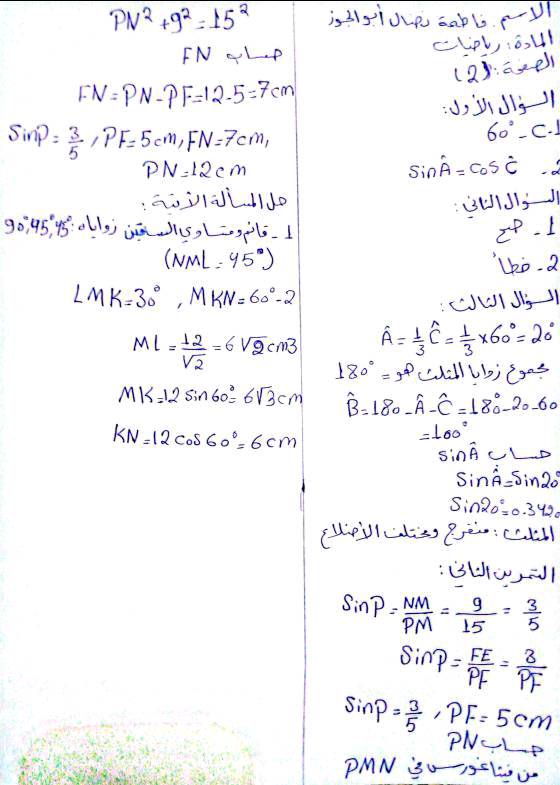 الاسم. فاطمة نضال أبو الجوز
المادة: رياضيات
الصفحة: (2)
السؤال الأول:
60° - C.1
sinÂ = cosĈ .2
السؤال الثاني:
1 - صح
2 - خطأ
السؤال الثالث:
Â = 1/3 Ĉ = 1/3 × 60° = 20°
مجموع زوايا المثلث هو = 180°
B̂ = 180 - Â - Ĉ = 180° - 20 - 60
= 100°
حساب sinÂ
SinÂ = Sin20°
Sin20° = 0.3420
المثلث: منفرج ومختلف الأضلاع
التمرين الثاني:
SinP = NM/PM = 9/15 = 3/5
SinP = FE/PF = 3/PF
SinP = 3/5 , PF = 5cm
حساب PN
من فيثاغورس في PMN
PN² + 9² = 15²
حساب FN
FN = PN - PF = 12 - 5 = 7cm
SinP = 3/5 , PF = 5cm, FN = 7cm,
PN = 12cm
حل المسألة الآتية:
1 - قائم ومتساوي الساقين زواياه: 45°, 45°, 90°
(NML = 45°)
LMK = 30° , MKN = 60° - 2
ML = 12/√2 = 6√2 cm 3
MK = 12 sin60° = 6√3 cm
KN = 12 cos60° = 6cm